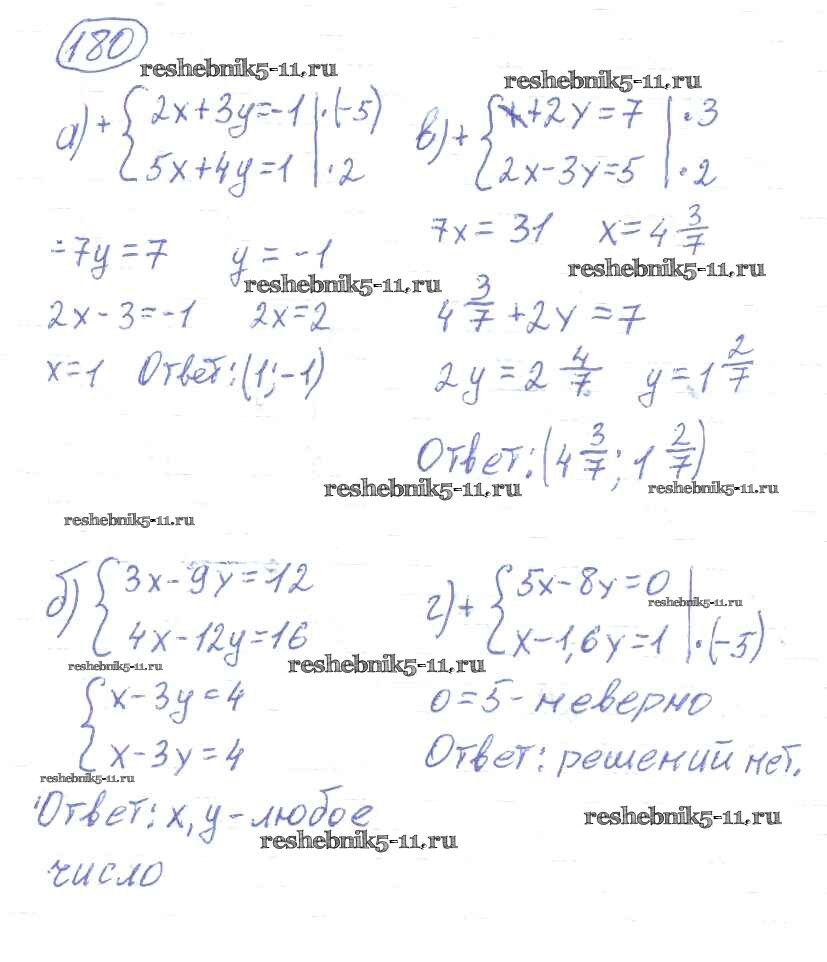 180
reshebnik5-11.ru
reshebnik5-11.ru
а) + { 2x+3y=-1 | ·(-5)
5x+4y=1 | ·2
-7y=7 y=-1
reshebnik5-11.ru
2x-3=-1 2x=2
x=1 Ответ: (1;-1)
в) + { x+2y=7 | ·3
2x-3y=5 | ·2
7x=31 x=4 3/7
reshebnik5-11.ru
4 3/7 +2y=7
2y=2 4/7 y=1 2/7
Ответ: (4 3/7; 1 2/7)
reshebnik5-11.ru
reshebnik5-11.ru
reshebnik5-11.ru
б) { 3x-9y=12
4x-12y=16
reshebnik5-11.ru
reshebnik5-11.ru
{ x-3y=4
x-3y=4
reshebnik5-11.ru
Ответ: x,y-любое
reshebnik5-11.ru
число
г) + { 5x-8y=0
reshebnik5-11.ru
x-1,6y=1 | ·(-5)
0=5-неверно
Ответ: решений нет.
reshebnik5-11.ru